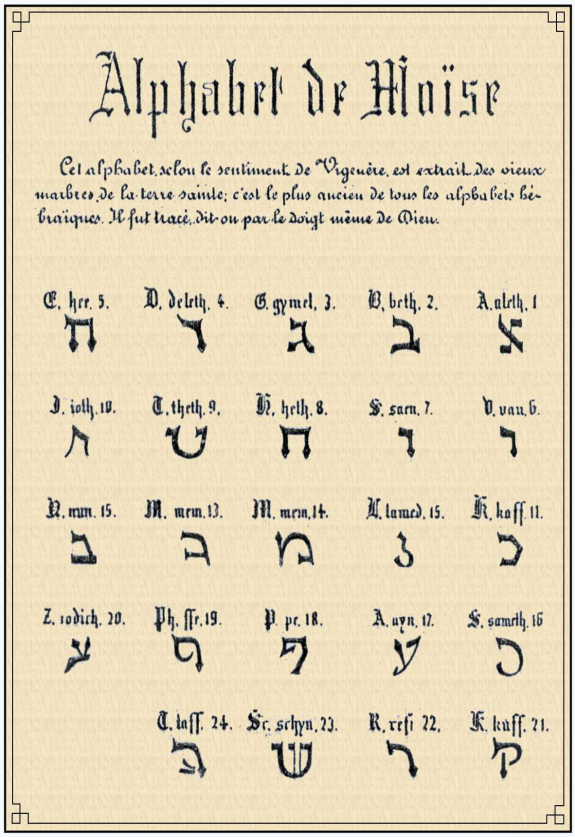 Alphabet de Moïse
Cet alphabet, selon le sentiment de Vigenère, est extrait des vieux
marbres, de la terre sainte; c'est le plus ancien de tous les alphabets hé-
braïques. Il fut tracé, dit-on par le doigt même de Dieu.
E, hee, 5. D, deleth, 4. G, gymel, 3. B, beth, 2. A, aleth, 1
א ב ג ד ח
J, ioth, 10. T, theth, 9. H, heth, 8. S, saen, 7. V, vau, 6.
ו ו ח ט
N, nun, 15. M, mem, 13. M, mem, 14. L, lamed, 15. K, kaff, 11.
כ מ ב ב
Z, zodich, 20. Ph, ffe, 19. P, pe, 18. A, ayn, 17. S, sameth, 16
ע ף צ
T, taff, 24. Sc, schyn, 23. R, resi 22, K, kuff, 21.
ק ר ש